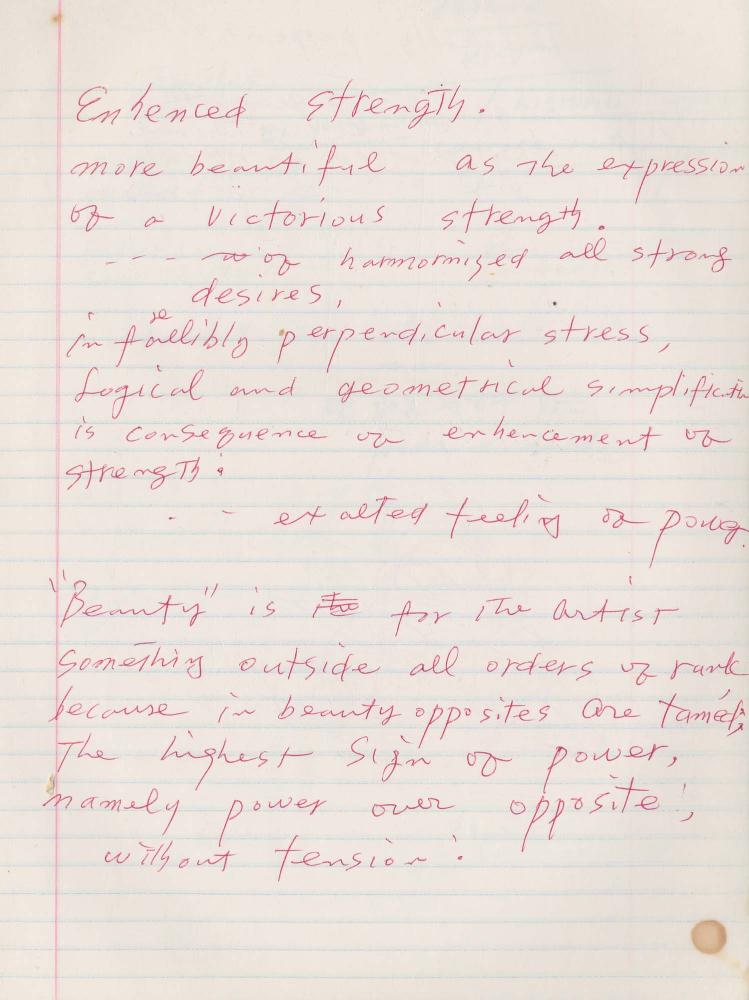 Enhenced strength.
more beautiful as the expression
of a victorious strength.
--- of harmornized all strong
desires,
infallibly perpendicular stress,
Logical and geometrical simplification
is consequence of enhencement of
strength:
. - exalted feeling of power.
"Beauty" is for the artist
something outside all orders of rank
because in beauty opposites are tamed;
The highest sign of power,
namely power over opposite',
without tension: